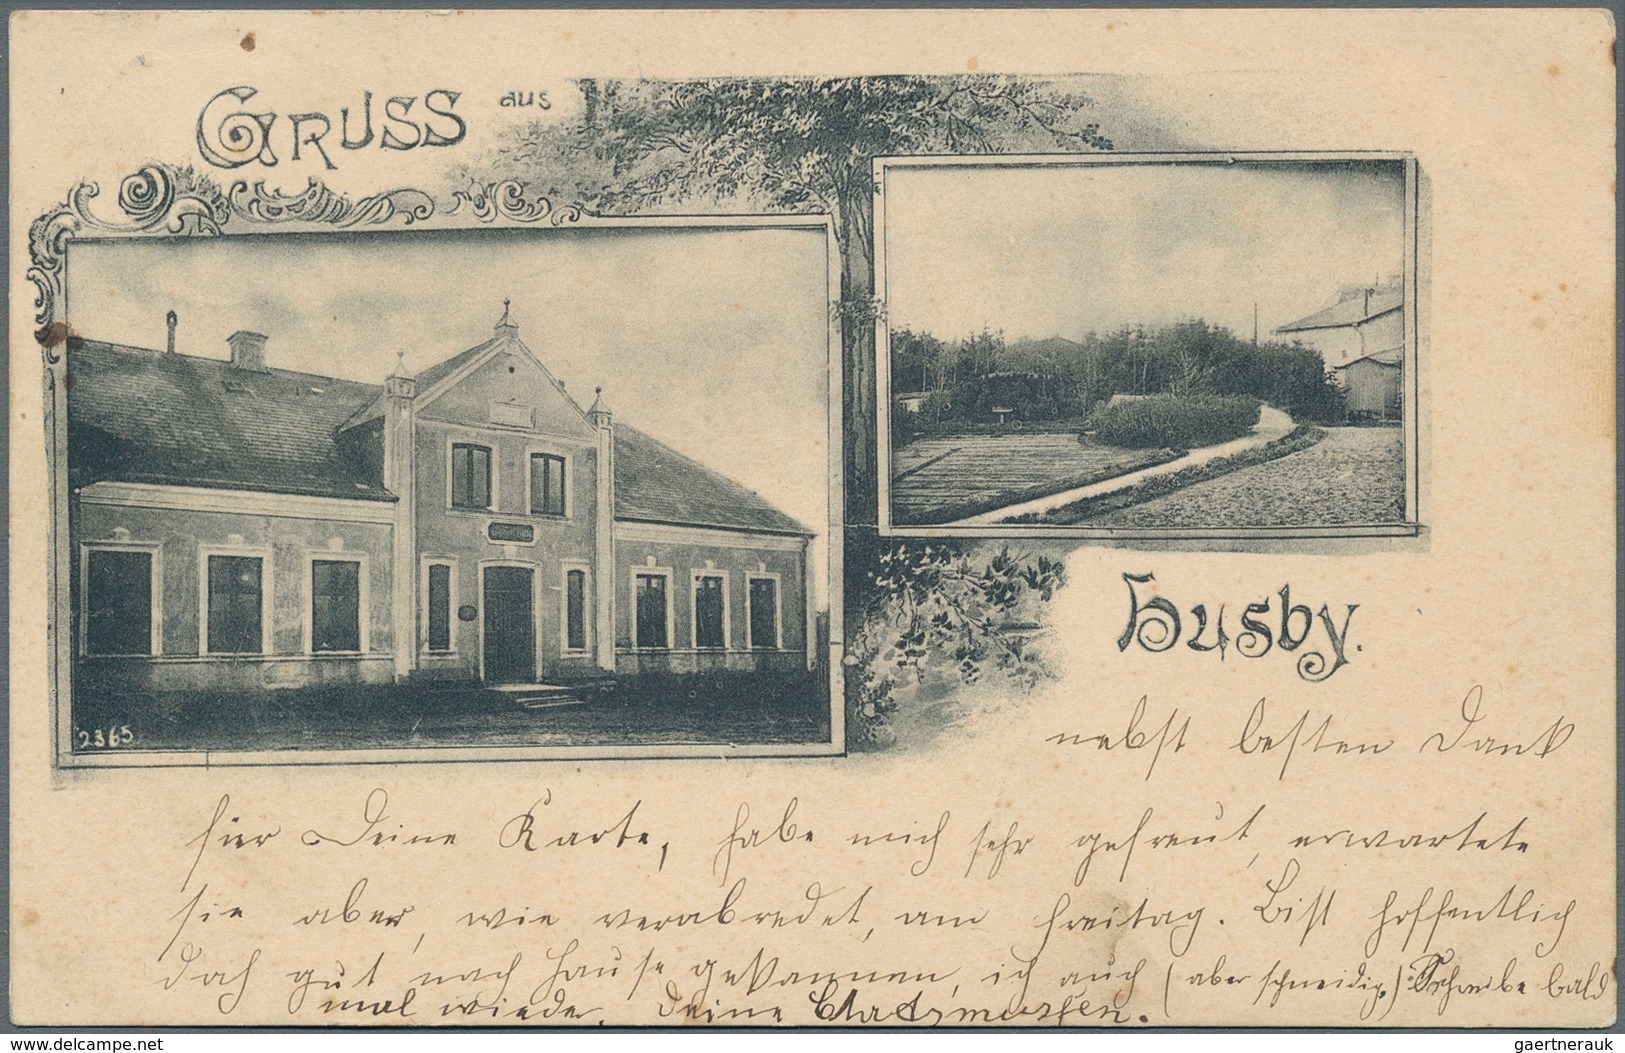 GRUSS aus
Husby.
2365
nebst besten Dank
für Deine Karte, habe mich sehr gefreut, erwartete
sie aber, wie verabredet, am Freitag. Bist hoffentlich
doch gut nach Hause gekommen, ich auch (aber schneidig.) Schreibe bald
mal wieder. Deine
oldthing.com
gaertnerauk